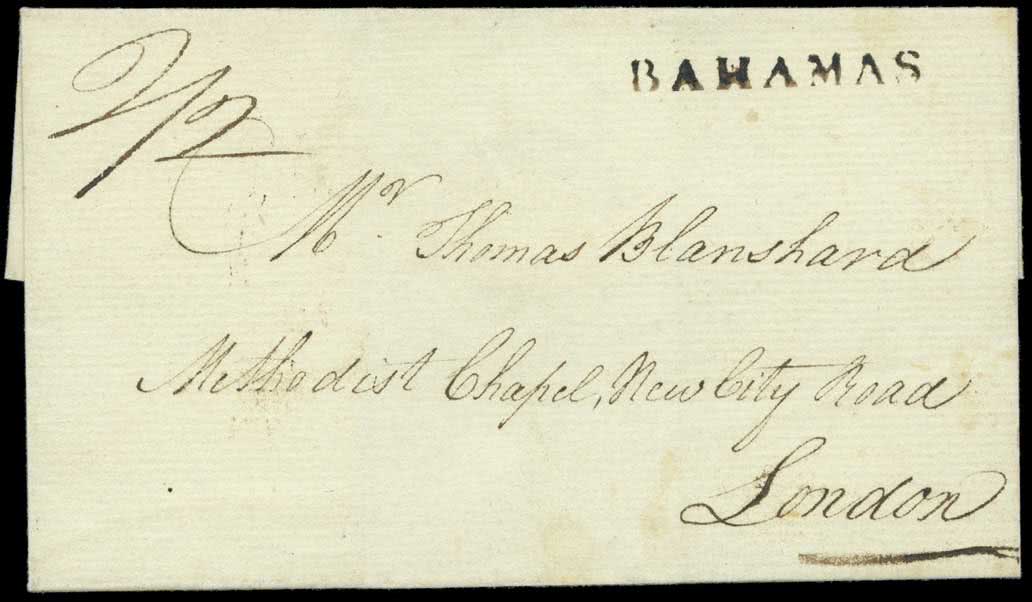 BAHAMAS
2/2
Mr. Thomas Blanshard
Methodist Chapel, New City Road
London